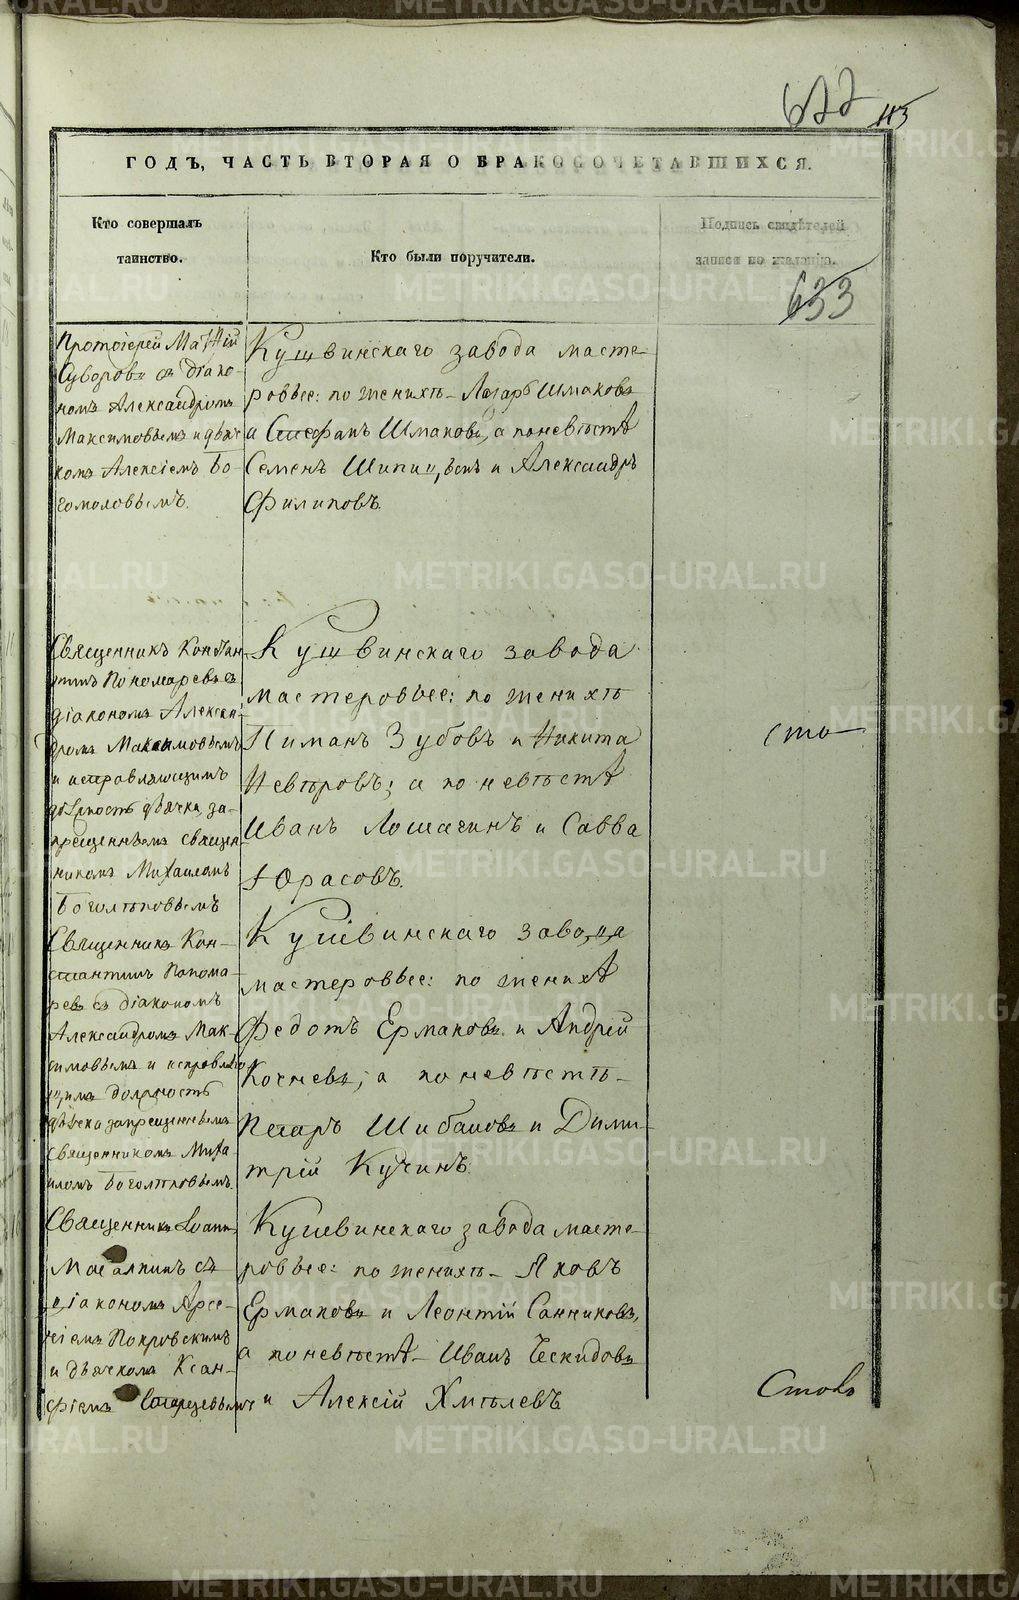 622 115
ГОДЪ, ЧАСТЬ ВТОРАЯ О БРАКОСОЧЕТАВШИХСЯ.
Кто совершалъ
таинство.
Кто были поручатели.
Подпись свидѣтелей
записи по желанію.
633
Протоіерей Матѳій
Суворовъ съ діако-
номъ Александромъ
Максимовымъ и дьяч-
комъ Алексіемъ Бо-
гомоловымъ.
Кушвинскаго завода масте-
ровые: по женихѣ - Лазарь Шмаковъ
и Стефанъ Шмаковъ, а по невѣстѣ
Семенъ Шипицынъ и Александръ
Филиповъ.
Священникъ Констан
тинъ Пономаревъ съ
діакономъ Алексан-
дромъ Максимовымъ
и исправляющимъ
должность дьячка, за-
прещеннымъ священ
никомъ Михаиломъ
Боголѣповымъ
Кушвинскаго завода
мастеровые: по женихѣ
Пиманъ Зубовъ и Никита
Невѣровъ; а по невѣстѣ
Иванъ Лошагинъ и Савва
Юрасовъ.
сто
Священникъ Кон-
стантинъ Понома-
ревъ съ діакономъ
Александромъ Мак-
симовымъ и исправляю
щимъ должность
дьячка запрещеннымъ
священникомъ Миха-
иломъ Боголѣповымъ.
Кушвинскаго завода
мастеровые: по женихѣ
Федотъ Ермаковъ и Андрей
Кочневъ; а по невѣстѣ-
Петръ Шибановъ и Дими-
трій Кучинъ.
Священникъ Іоаннъ
Масалкинъ съ
діакономъ Арсе-
ніемъ Покровскимъ
и дьячкомъ Ксан-
фіемъ
Кушвинскаго завода масте-
ровые: по женихѣ - Яковъ
Ермаковъ и Леонтій Санниковъ,
а по невѣстѣ - Иванъ Ческидовъ
и Алексій Хмѣлевъ
Стовъ
METRIKI.GASO-URAL.RU